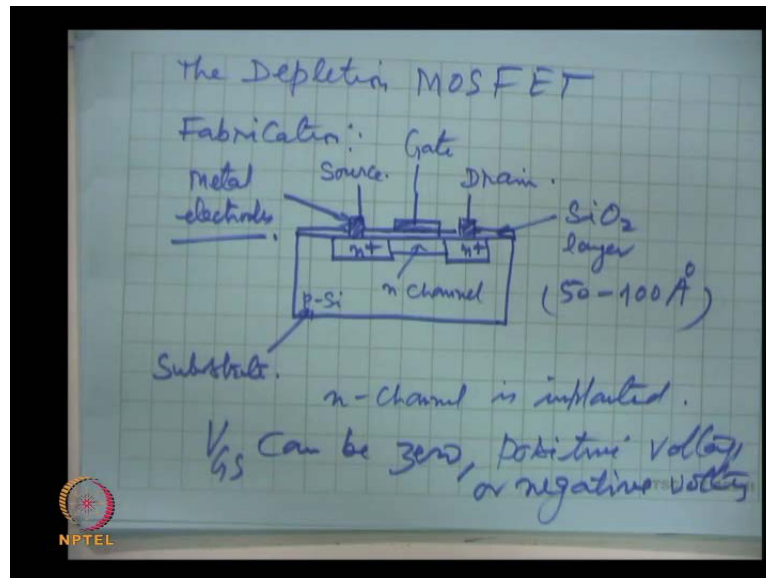 The Depletion MOSFET
Fabrication:
Gate
Metal
electrodes.
Source.
Drain.
SiO2
layer
(50-100 Å)
n+
n+
n channel
p-Si
Substrate.
n-channel is implanted.
VGS can be zero, positive voltage,
or negative voltage
NPTEL